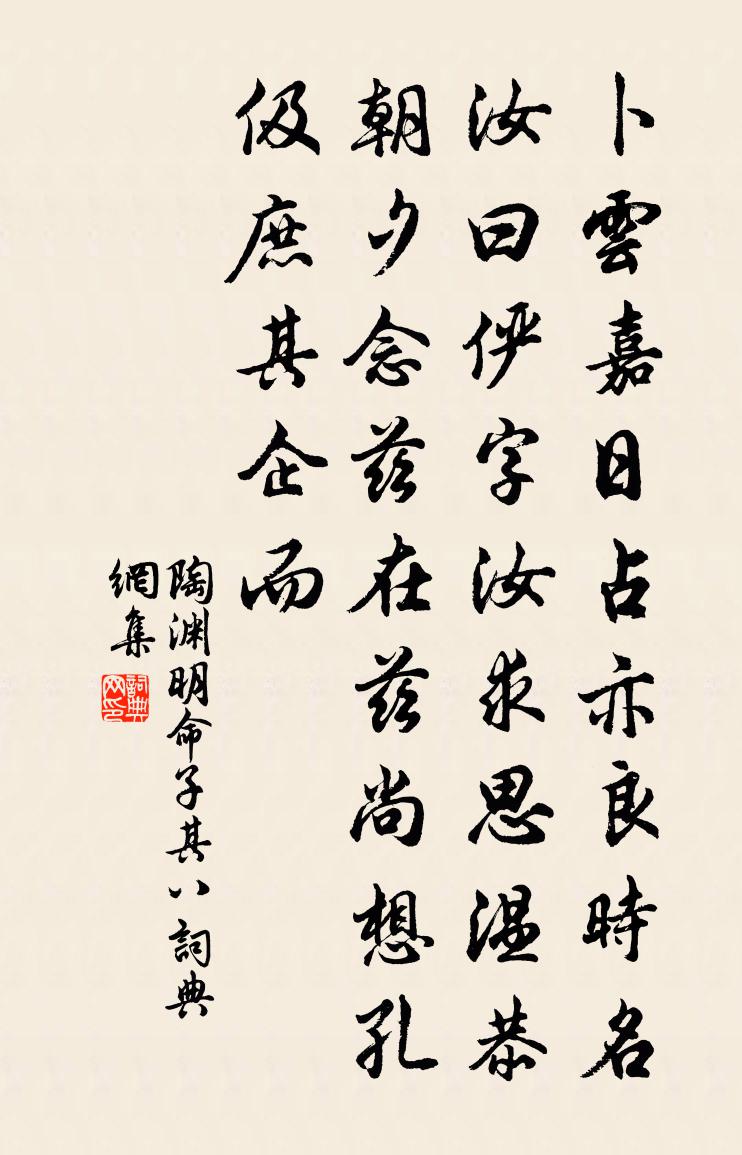 卜雲嘉日占亦良時名
汝曰儼字汝求思溫恭
朝夕念茲在茲尚想孔
伋庶其企而
陶渊明命子其八詞典
網集
詞典
网印